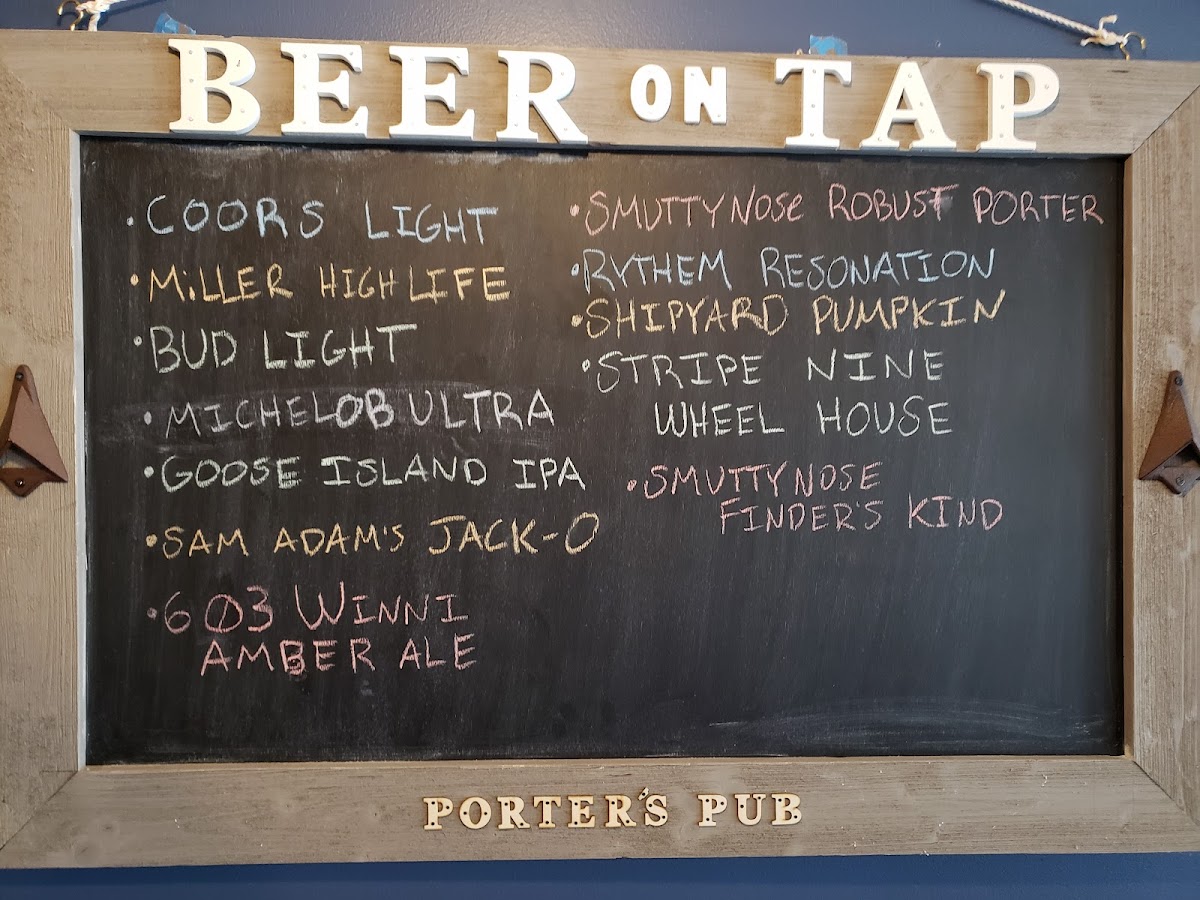 BEER ON TAP
• COORS LIGHT
• MiLLER HIGH LIFE
• BUD LIGHT
• MICHELOB ULTRA
• GOOSE ISLAND IPA
• SAM ADAM'S JACK-O
• 603 WINNI
AMBER ALE
• SMUTTYNOSE ROBUST PORTER
• RYTHEM RESONATION
• SHIPYARD PUMPKIN
• STRIPE NINE
WHEEL HOUSE
• SMUTTYNOSE
FINDER'S KIND
PORTER'S PUB